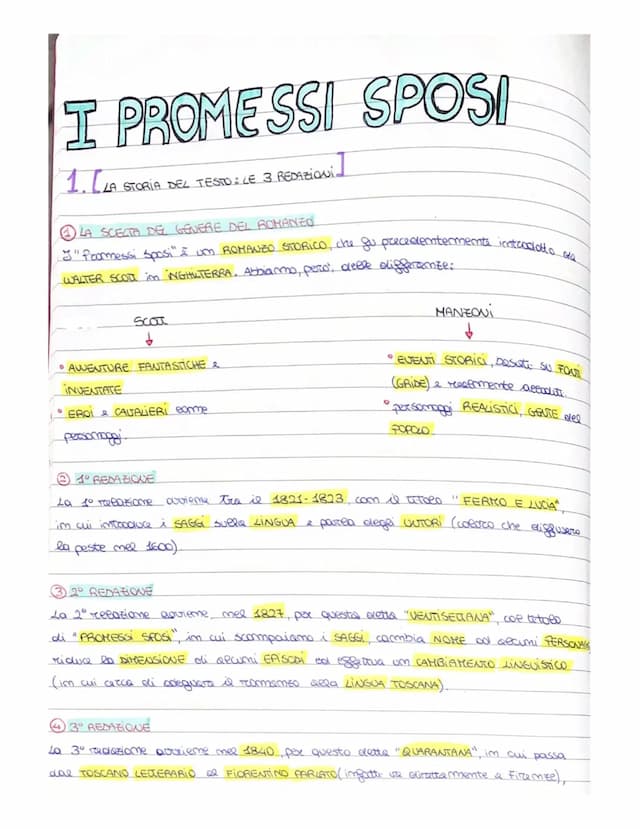 I PROMESSI SPOSI
1. [LA STORIA DEL TESTO: LE 3 REDAZIONI]
① LA SCELTA DEL GENERE DEL ROMANZO
I "Promessi Sposi" è un ROMANZO STORICO, che fu precedentemente introdotto da
WALTER SCOTT in INGHILTERRA. Abbiamo, però, delle differenze:
SCOTT
MANZONI
↓
↓
• AVVENTURE FANTASTICHE e
INVENTATE
• EROI e CAVALIERI come
personaggi.
• EVENTI STORICI, basati su FONTI
(GRIDE) e realmente accaduti.
• personaggi REALISTICI, GENTE del
POPOLO
② 1° REDAZIONE
La 1° redazione avviene tra il 1821-1823, con il titolo "FERMO E LUCIA",
in cui introduce i SAGGI sulla LINGUA e parla degli UNTORI (coloro che diffusero
la peste nel 1600)
③ 2° REDAZIONE
La 2° redazione avviene nel 1827, per questo detta "VENTISETTANA", col titolo
di "PROMESSI SPOSI", in cui scompaiono i SAGGI, cambia NOME ad alcuni PERSONAG
riduce la DIMENSIONE di alcuni EPISODI ed effettua un CAMBIAMENTO LINGUISTICO
(in cui cerca di adeguare il romanzo alla LINGUA TOSCANA).
④ 3° REDAZIONE
La 3° redazione avviene nel 1840, per questo detta "QUARANTANA", in cui passa
dal TOSCANO LETTERARIO al FIORENTINO PARLATO (infatti va direttamente a Firenze),